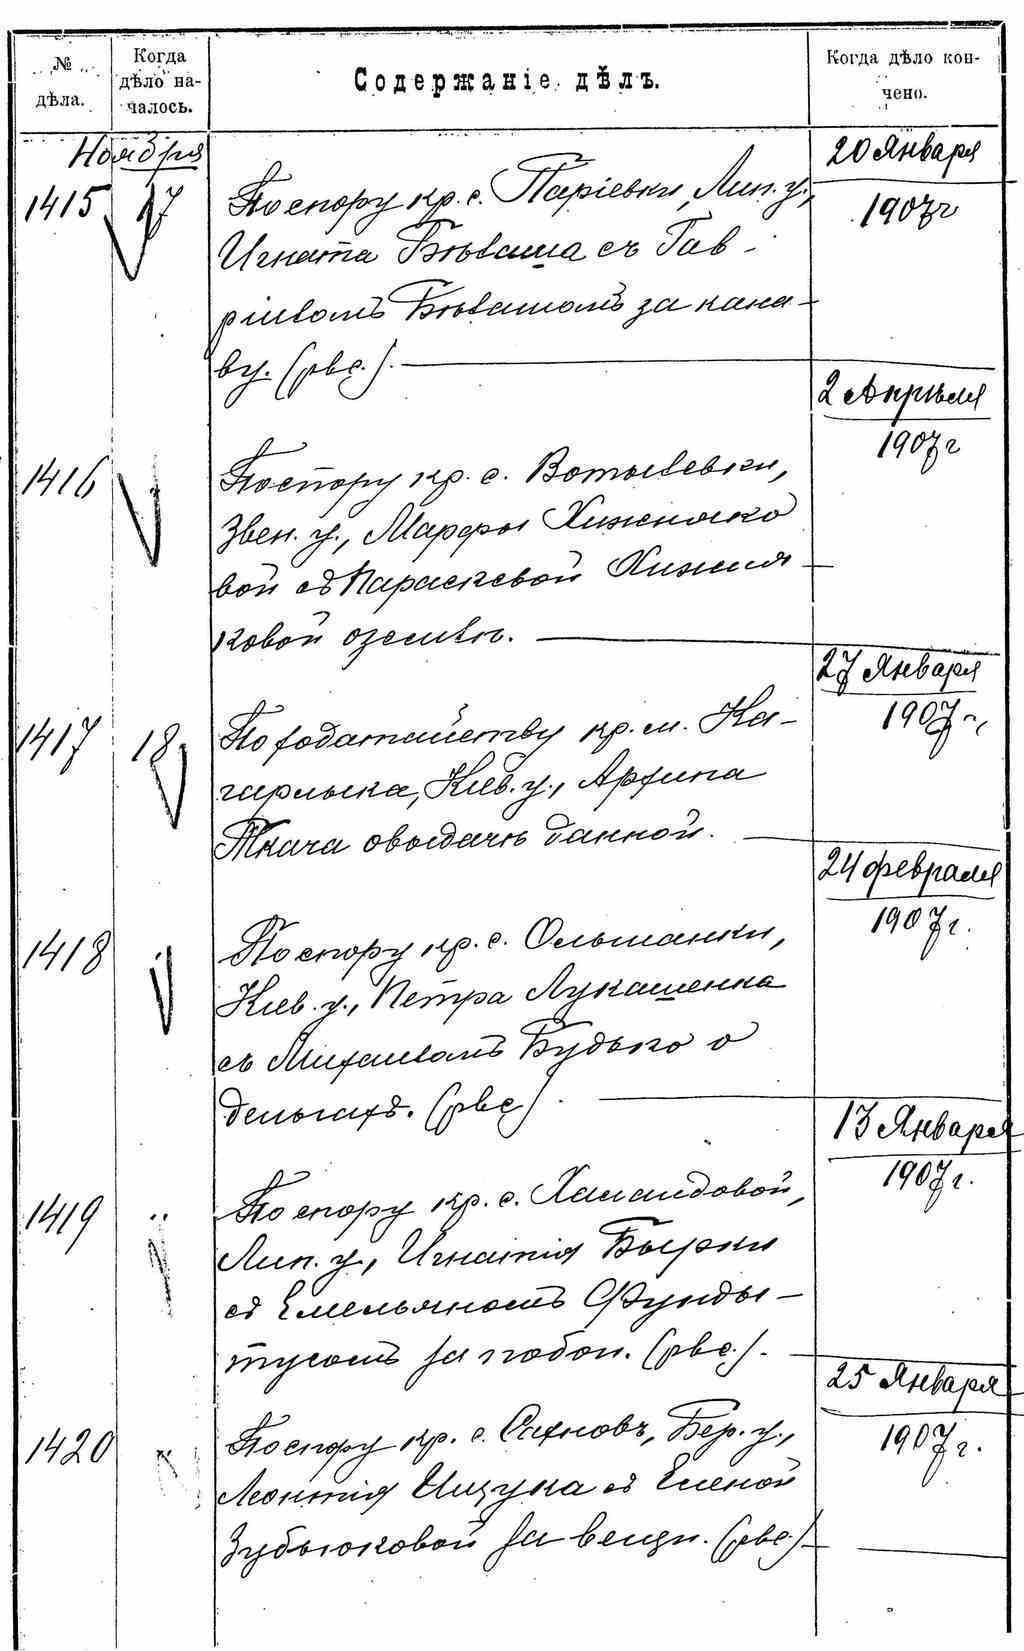 № дѣла.
Когда дѣло началось.
Содержаніе дѣлъ.
Когда дѣло кончено.
Ноября
20 Января
1415 17 По спору кр. с. Паріевки, Лип. у., 1907 г
Игната Бѣваша съ Гав-
ріиломъ Бѣвашомъ за кана-
ву. (рвс.).
2 Апрѣля
1907 г
1416 По спору кр. с. Вотылевки,
Звен. у., Марфы Хижняко
вой съ Параскевой Хижня-
ковой о землѣ.
27 Января
1907 г.
1417 18 По ходатайству кр. м. Ка-
гарлыка, Кіев. у., Архипа
Ткача о выдачѣ данной.
24 февраля
1907 г.
1418 " По спору кр. с. Ольшанки,
Кіев. у., Петра Лукашенка
съ Михаиломъ Будько о
деньгахъ. (рвс)
13 Января
1907 г.
1419 " По спору кр. с.
Лип. у., Игнатія Бырки
съ Емельяномъ Фунды-
тусомъ за побои. (рвс.).
25 Января
1420 " По спору кр. с. Сахновъ, Бер. у., 1907 г.
Леонтія Ищука съ Еленой
Зубьюковой за вещи. (рвс.)